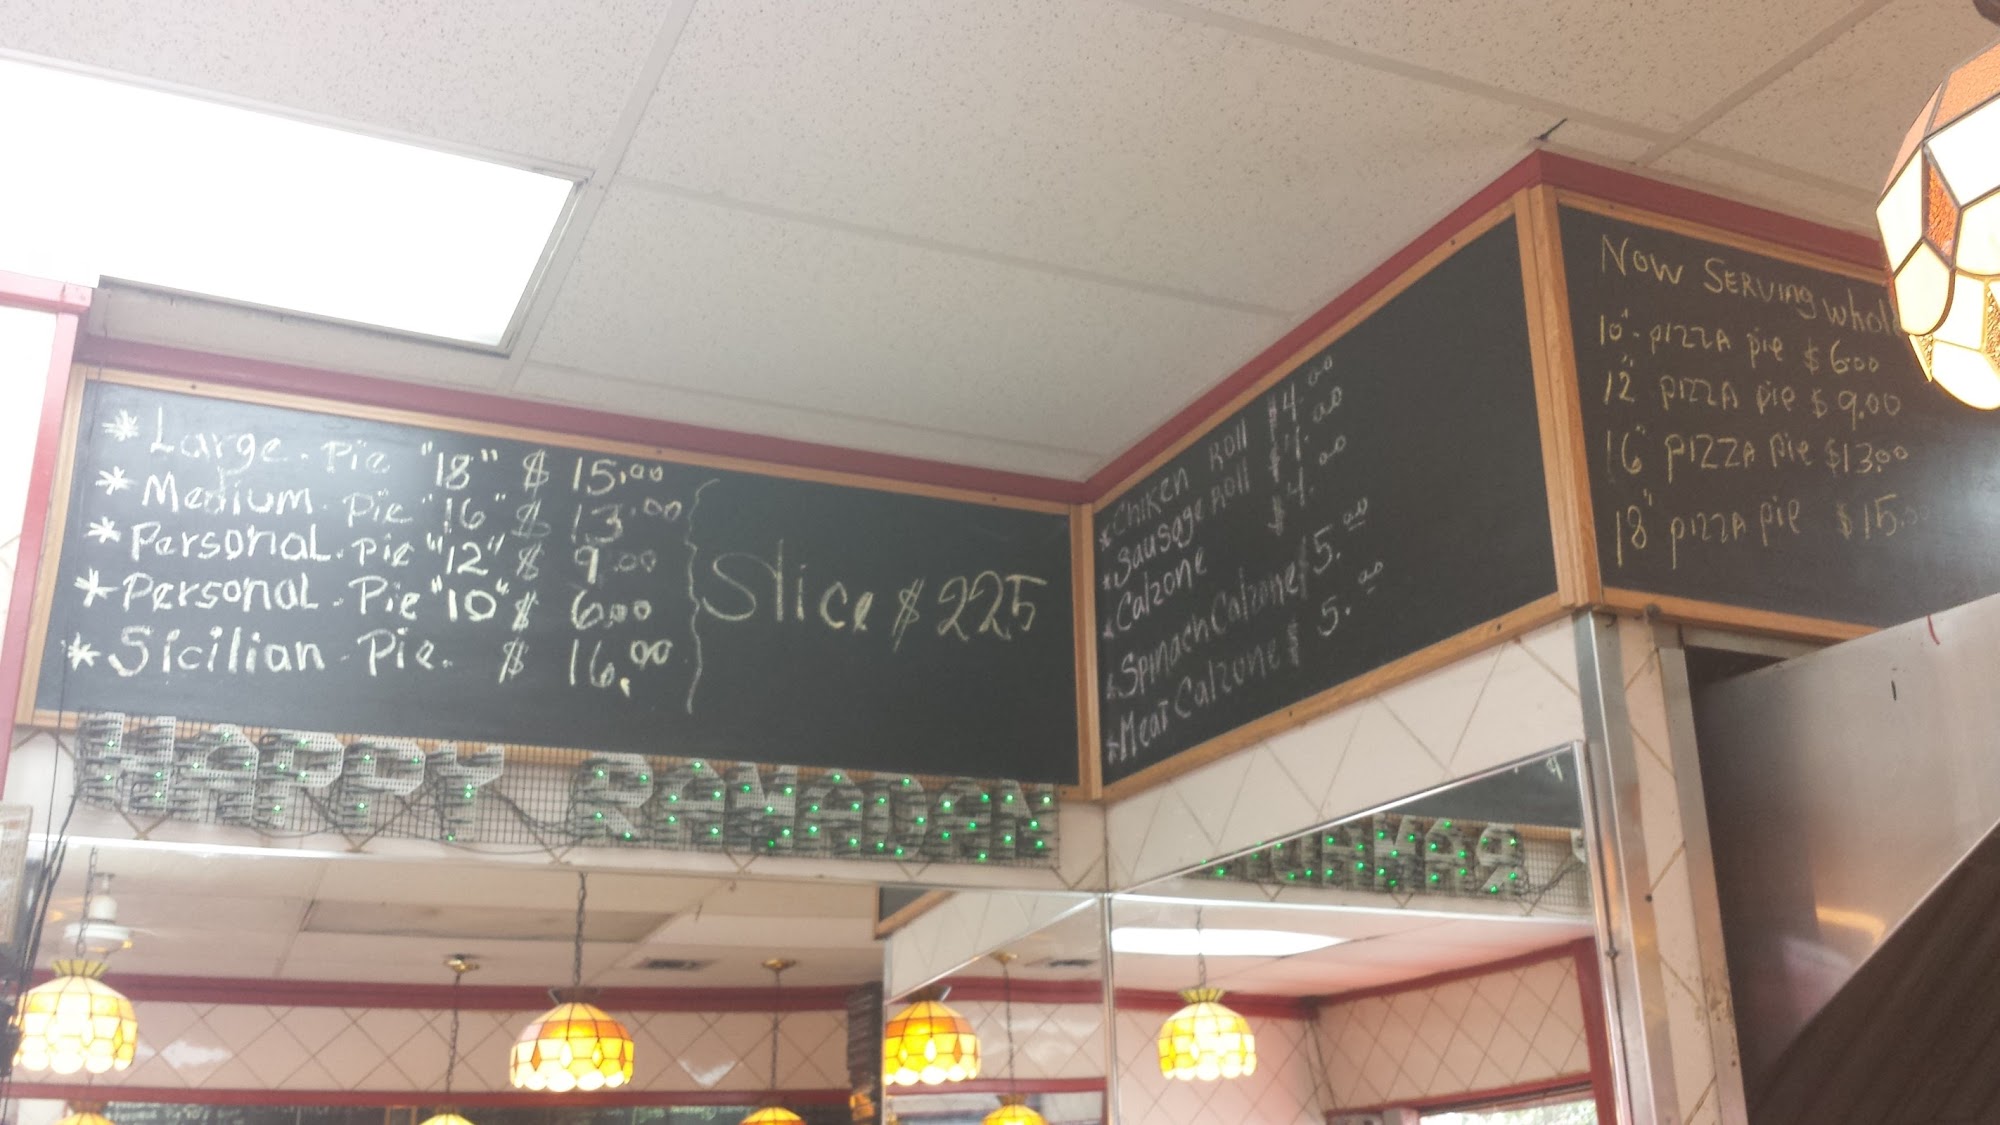 * Large - Pie "18" $ 15.00
* Medium - Pie "16" $ 13.00
* Personal - Pie "12" $ 9.00
* Personal - Pie "10" $ 6.00
* Sicilian - Pie. $ 16.00
Slice $ 225
* Chiken Roll $4.00
* Sausage Roll $4.00
* Calzone $4.00
* Spinach Calzone $5.00
* Meat Calzone $5.00
Now Serving whole
10" pizza pie $6.00
12" pizza pie $9.00
16" pizza pie $13.00
18" pizza pie $15.00
HAPPY RAMADAN